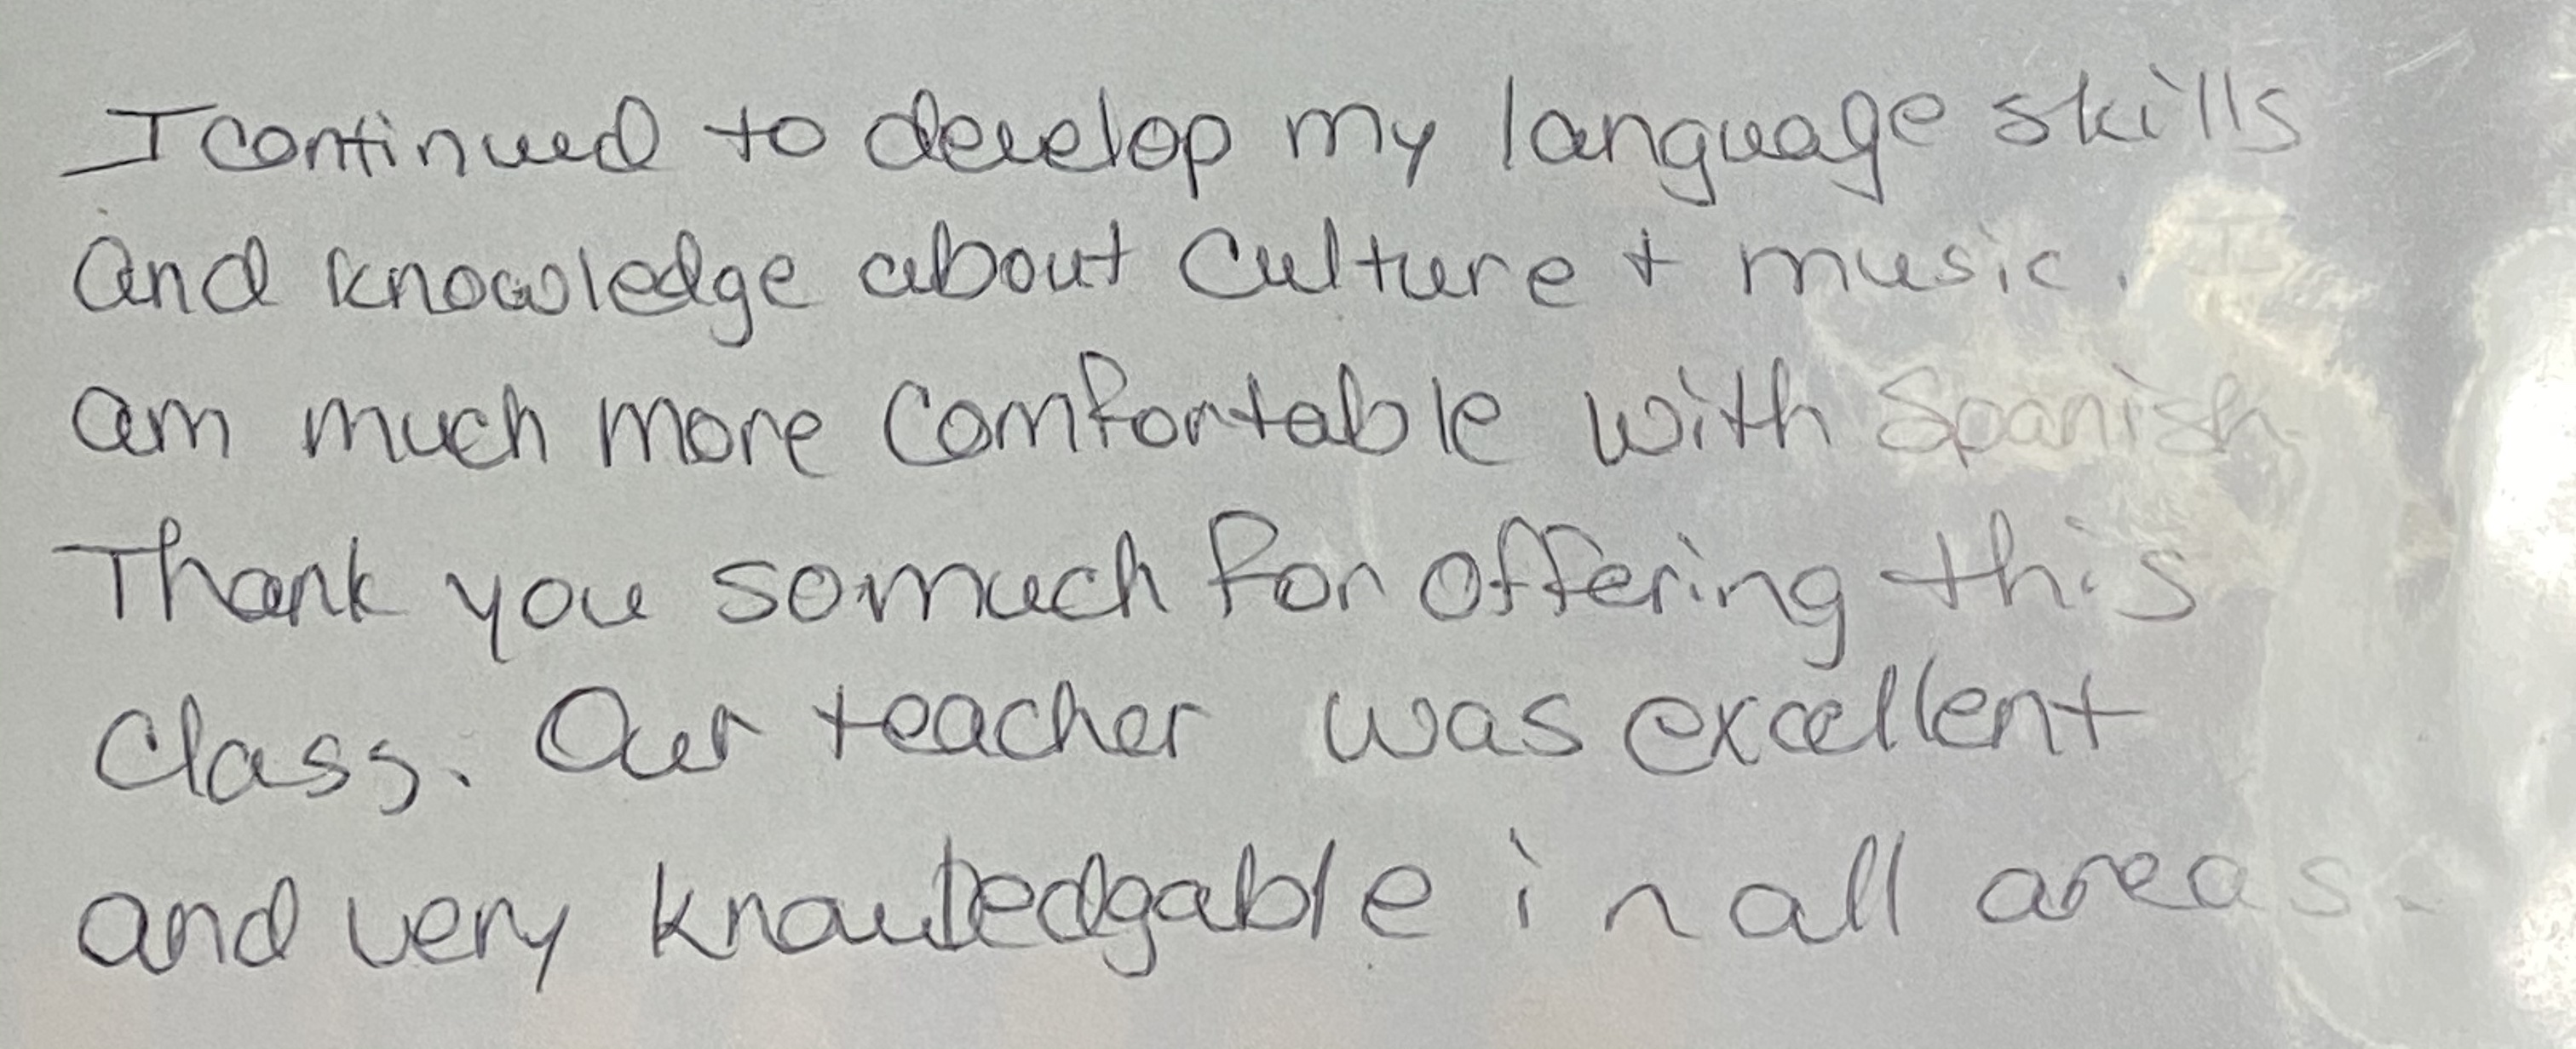 I continued to develop my language skills
and knowledge about culture + music. I
am much more comfortable with Spanish.
Thank you so much for offering this
class. Our teacher was excellent
and very knowledgable in all areas.